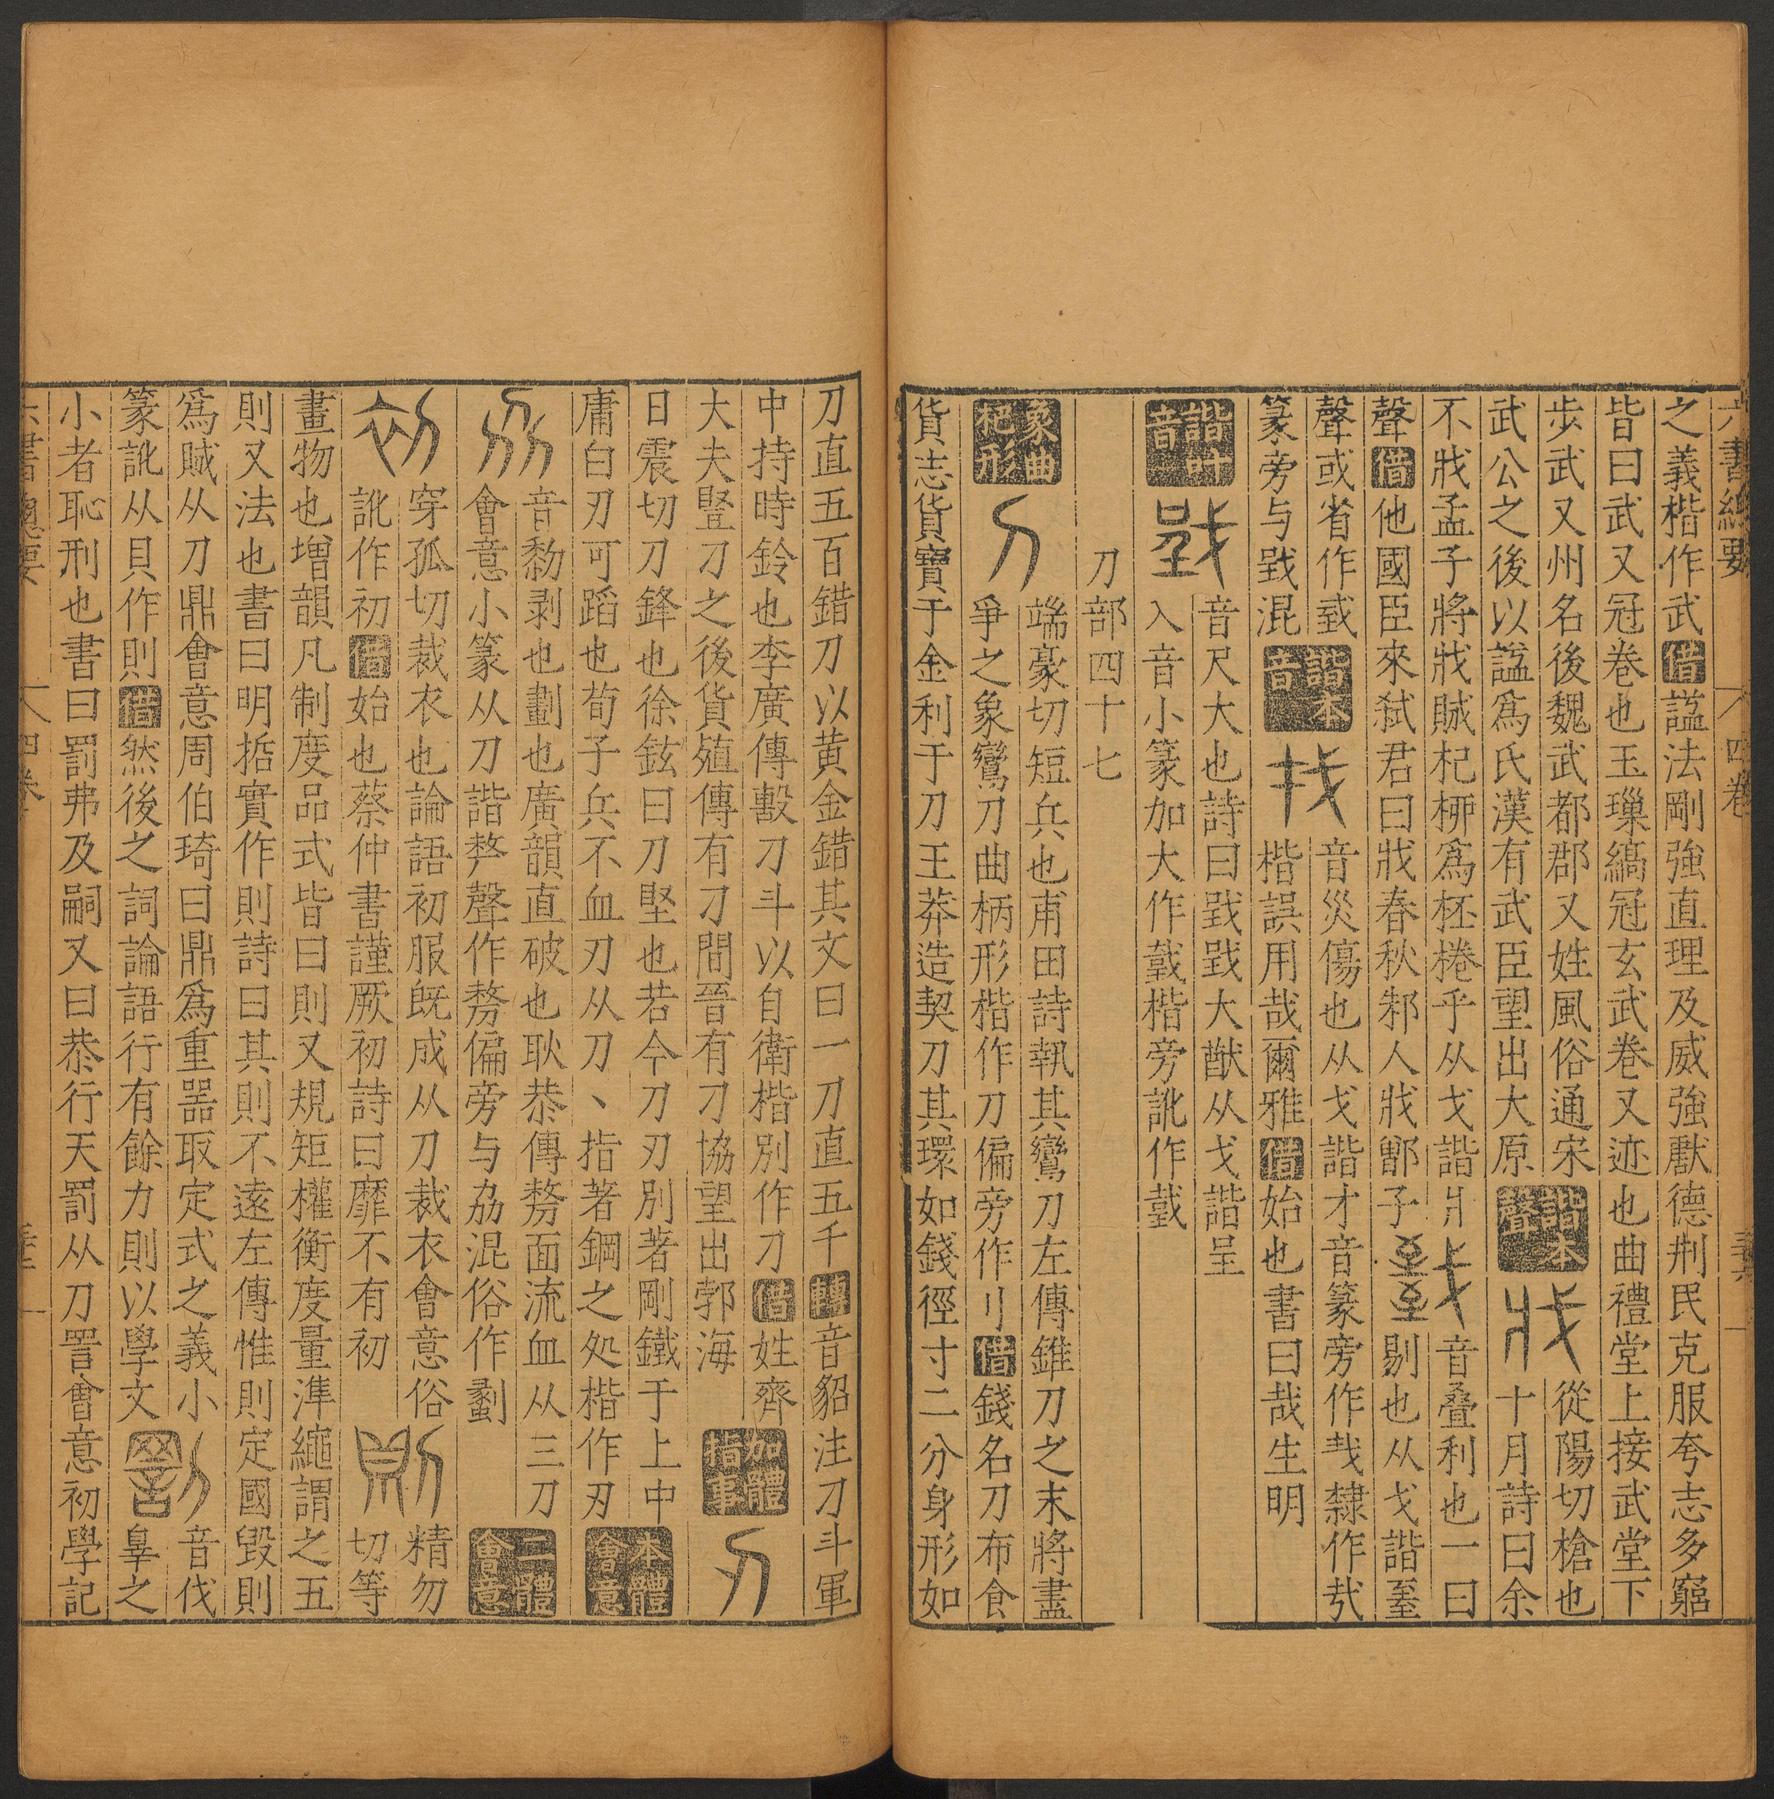 六書總要 四卷
之義楷作武借諡法剛強直理及威強德荆民克服夸志多窮
皆曰武又冠卷也玉璪縞冠玄武卷又迹也曲禮堂上接武堂下
步武又州名後魏武都郡又姓風俗通宋
武公之後以諡爲氏漢有武臣望出大原
諧本聲
戕
從陽切槍也
十月詩曰余
不戕孟子將戕賊杞桺爲桮棬乎从戈諧爿
聲借他國臣來弑君曰戕春秋邾人戕鄫子
音叠利也一曰
剔也从戈諧臸
聲或省作戜
篆旁与𢧜混
諧本音
𢦏
音災傷也从戈諧才音篆旁作𢦏隸作𢦏
楷誤用哉爾雅借始也書曰哉生明
諧叶音
𢧜
音尺大也詩曰𢧜𢧜大猷从戈諧呈
入音小篆加大作𢨁楷旁訛作𢧤
刀部四十七
象曲柄形
刀
端豪切短兵也甫田詩執其鸞刀左傳錐刀之末將盡
爭之象鸞刀曲柄形楷作刀偏旁作刂借錢名刀布食
貨志貨寶于金利于刀王莽造契刀其環如錢徑寸二分身形如
刀直五百錯刀以黄金錯其文曰一刀直五千轉音貂注刀斗軍
中持時鈴也李廣傳擊刀斗以自衛楷別作刁借姓齊
大夫豎刀之後貨殖傳有刁間晉有刁協望出郭海
加體指事
刃
日震切刀鋒也徐鉉曰刀堅也若今刀刃別著剛鐵于上中
庸白刃可蹈也荀子兵不血刃从刀丶指著鋼之処楷作刃
本體會意
刕
音黎剥也劃也廣韻直破也耿恭傳剺面流血从三刀
會意小篆从刀諧𠩺聲作剺偏旁与劦混俗作劙
二體會意
初
穿孤切裁衣也論語初服旣成从刀裁衣會意俗
訛作初借始也蔡仲書謹厥初詩曰靡不有初
則
精勿
切等
畫物也增韻凡制度品式皆曰則又規矩權衡度量準繩謂之五
則又法也書曰明㨂實作則詩曰其則不遠左傳惟則定國毀則
爲賊从刀鼎會意周伯琦曰鼎爲重噐取定式之義小
篆訛从貝作則借然後之詞論語行有餘力則以學文
罰
音伐
辠之
小者恥刑也書曰罰弗及嗣又曰恭行天罰从刀詈會意初學記
六書總要 四卷